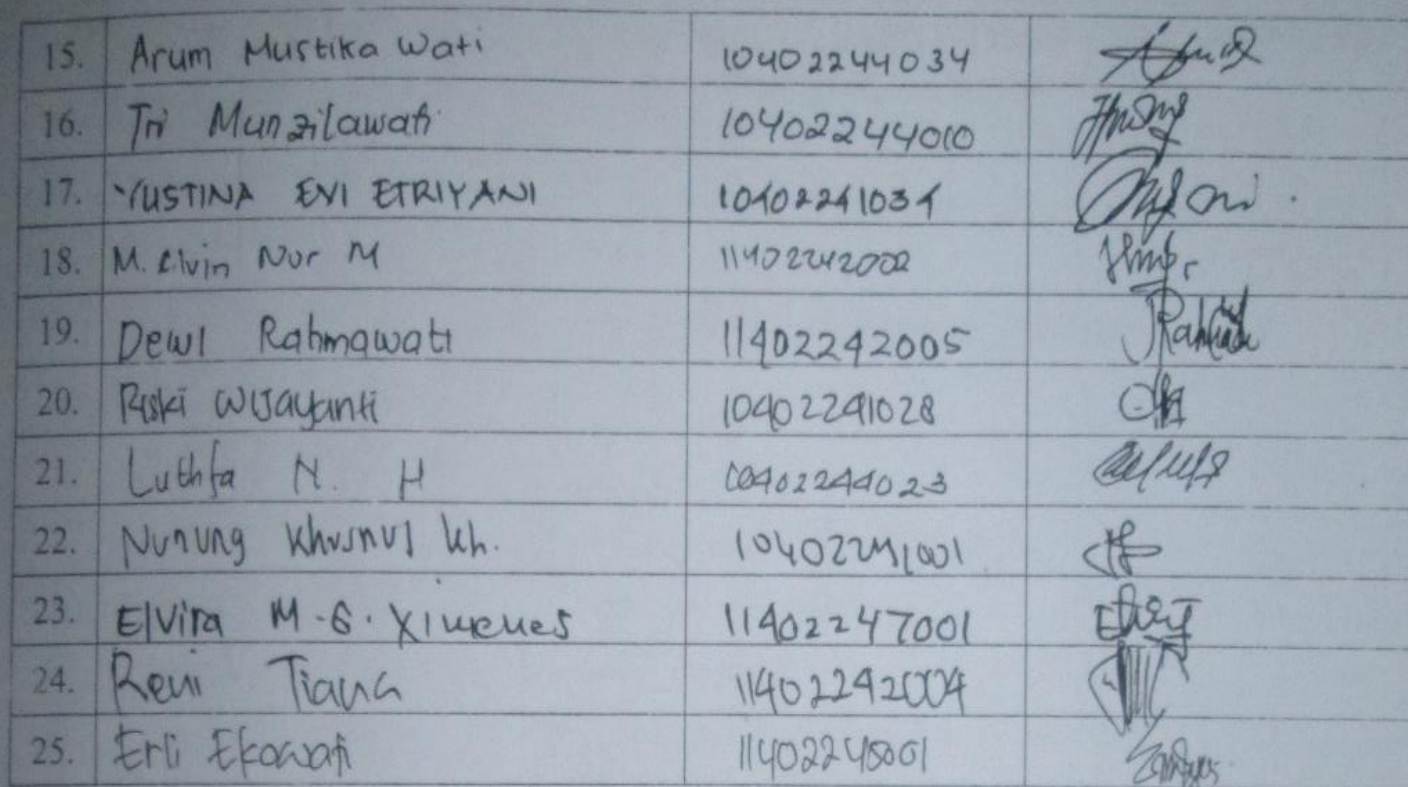 15. Arum Mustika Wati 10402244034
16. Tri Munzilawati 10402244010
17. YUSTINA EVI ETRIYANI 10402241034
18. M. Elvin Nur M 11402242002
19. Dewi Rahmawati 11402242005
20. Riski Wijayanti 10402241028
21. Luthfa N. H 10402244023
22. Nunung Khusnul Kh. 10402241001
23. Elvira M.G. Ximenes 11402247001
24. Reni Tiana 11402242004
25. Erli Ekowati